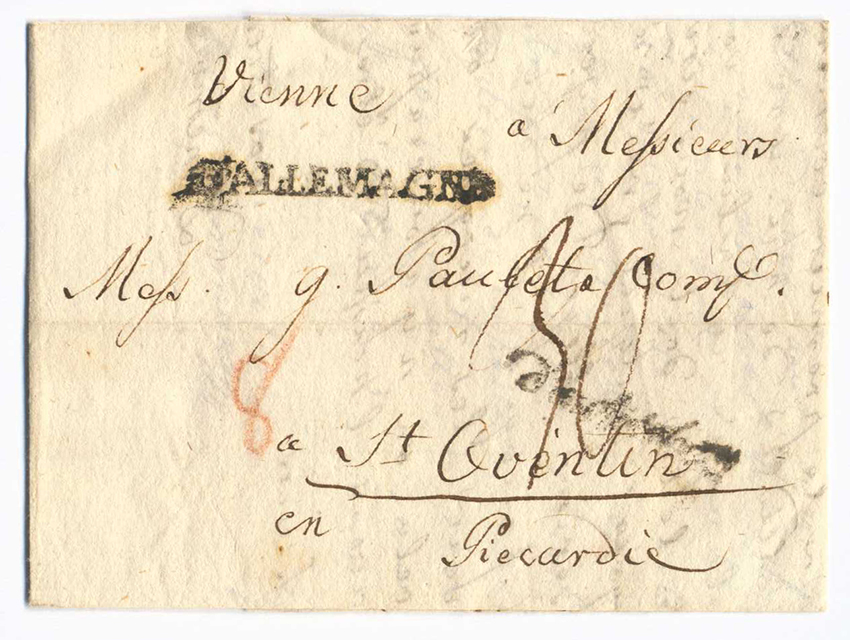 Vienne
a Messieurs
D'ALLEMAGNE
Mess. g. Paulet & Comp.
30
8
a St Quentin
en
Piccardie